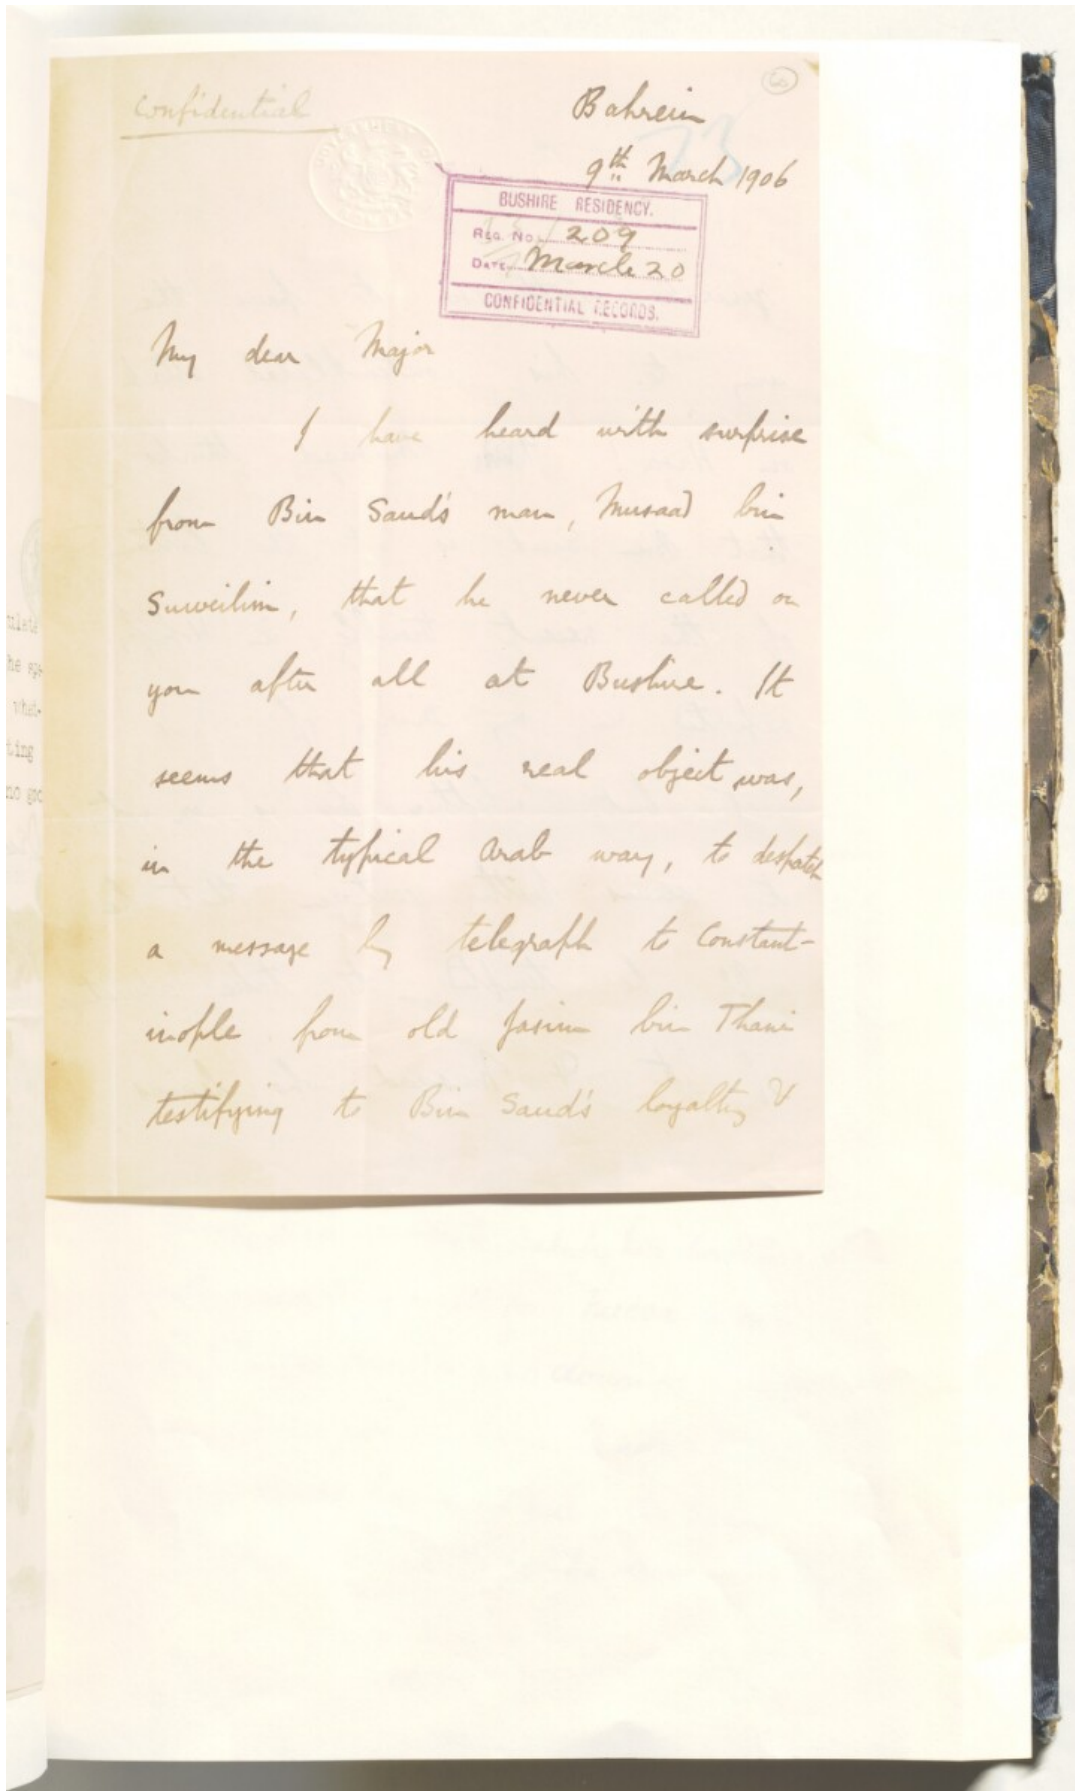 Confidential
Bahrein
9th March 1906
BUSHIRE RESIDENCY.
REG. No. 209
DATE March 20
CONFIDENTIAL RECORDS.
My dear Major
I have heard with surprise
from Bin Saud's man, Musaad bin
Suweilim, that he never called on
you after all at Bushire. It
seems that his real object was,
in the typical Arab way, to despatch
a message by telegraph to Constant-
inople from old Jasim bin Thani
testifying to Bin Saud's loyalty &